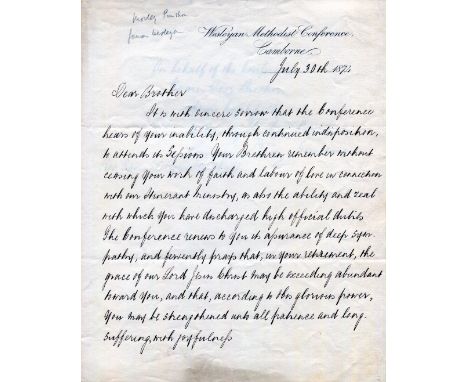 Morley Punshon
famous Wesleyan
Wesleyan Methodist Conference,
Camborne,
July 30th 187
Dear Brother
It is with sincere sorrow that the Conference
hears of your inability, through continued indisposition,
to attend its Sessions. Your Brethren remember without
ceasing your work of faith and labour of love in connection
with our Itinerant Ministry, as also the ability and zeal
with which you have discharged high official duties
The Conference renews to you its assurance of deep sym-
pathy, and fervently prays that, in your retirement, the
grace of our Lord Jesus Christ may be exceeding abundant
toward you, and that, according to His glorious power,
you may be strengthened unto all patience and long-
suffering, with joyfulness